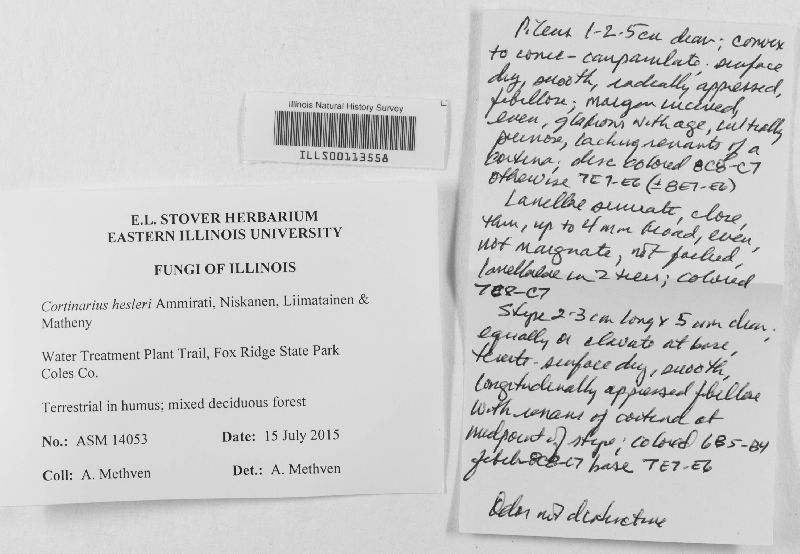 Illinois Natural History Survey
ILLS00113558
E.L. STOVER HERBARIUM
EASTERN ILLINOIS UNIVERSITY
FUNGI OF ILLINOIS
Cortinarius hesleri Ammirati, Niskanen, Liimatainen &
Matheny
Water Treatment Plant Trail, Fox Ridge State Park
Coles Co.
Terrestrial in humus; mixed deciduous forest
No.: ASM 14053 Date: 15 July 2015
Coll: A. Methven Det.: A. Methven
Pileus 1-2.5cm diam; convex
to conic-campanulate; surface
dry, smooth, radially appressed,
fibillose; margin incurved,
even, glabrous with age, initially
pruinose, lacking remants of a
cortina; disc colored 8C8-C7
otherwise 7E7-E6 (±8E7-E6)
Lamellae sinuate, close,
thin, up to 4mm broad, even,
not marginate, not forked,
lamellulae in 2 tiers; colored
7C8-C7
Stipe 2-3cm long x 5mm diam,
equally or clavate at base,
terete. surface dry, smooth,
longitudinally appressed fibillose
with remans of cortina at
midpoint of stipe; colored 6B5-B4
8C8-C7 base 7E7-E6
Odor not distinctive